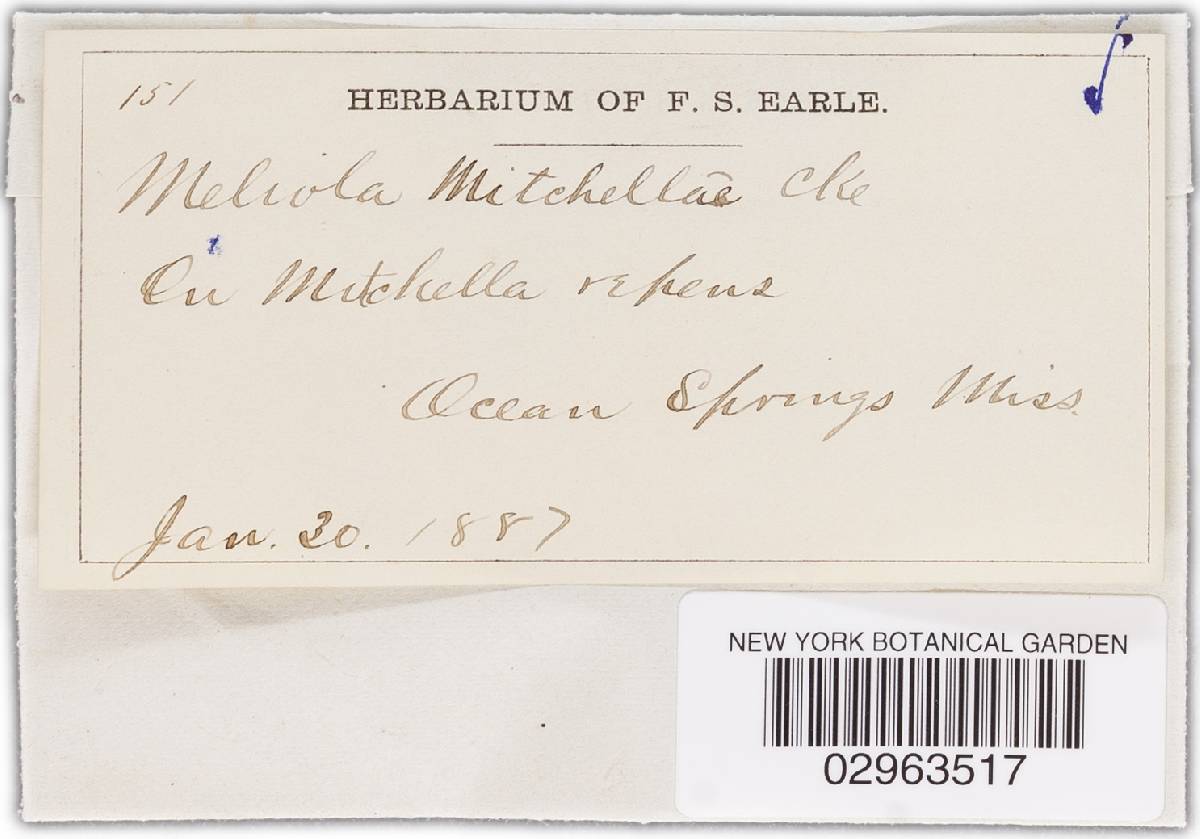 151
HERBARIUM OF F. S. EARLE.
Meliola Mitchellae Cke
On Mitchella repens
Ocean Springs Miss.
Jan. 20. 1887
NEW YORK BOTANICAL GARDEN
02963517